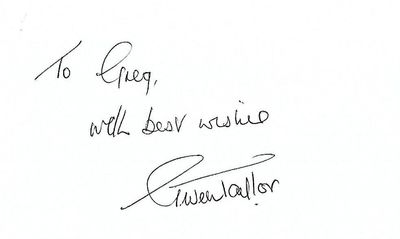 To Greg,
with best wishes
Gwen Taylor